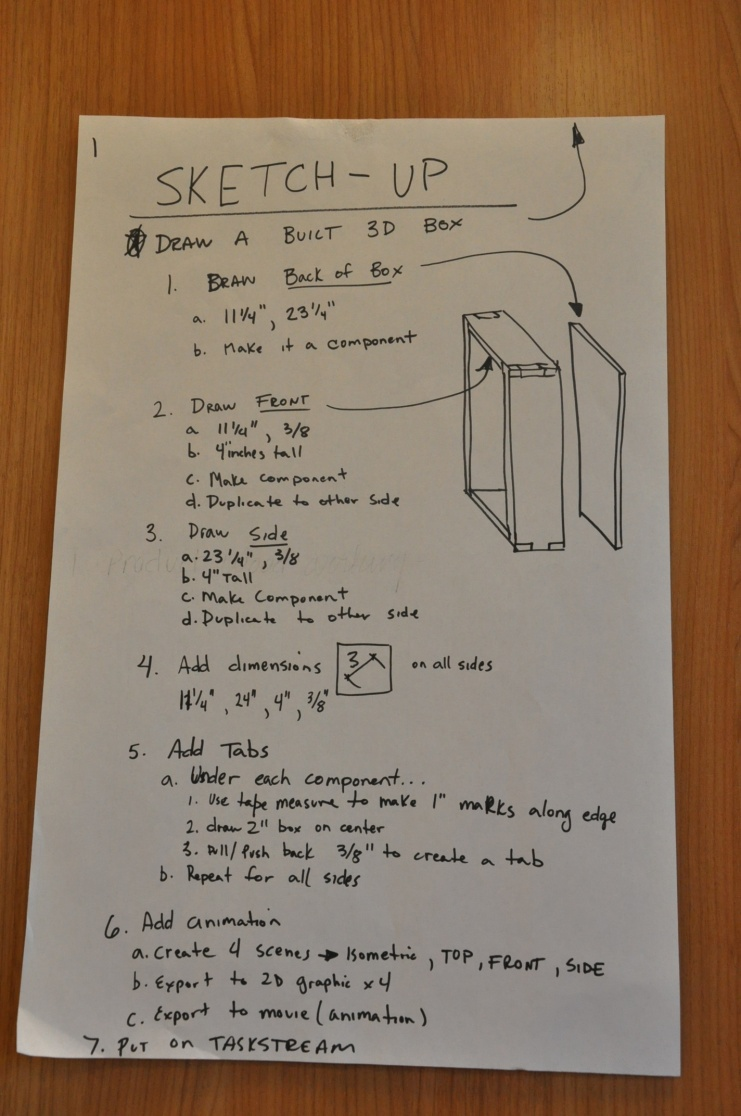 1
SKETCH-UP
DRAW A BUILT 3D BOX
1. DRAW Back of Box
a. 11 1/4", 23 1/4"
b. Make it a component
2. Draw FRONT
a 11 1/4", 3/8
b. 4"inches tall
c. Make component
d. Duplicate to other side
3. Draw Side
a. 23 1/4", 3/8
b. 4" Tall
c. Make Component
d. Duplicate to other side
4. Add dimensions 3 on all sides
11 1/4", 24", 4", 3/8"
5. Add Tabs
a. Under each component...
1. Use tape measure to make 1" maRks along edge
2. draw 2" box on center
3. Pull/Push back 3/8" to create a tab
b. Repeat for all sides
6. Add animation
a. Create 4 scenes → Isometric, TOP, FRONT, SIDE
b. Export to 2D graphic x4
c. Export to movie (animation)
7. PUT on TASKSTREAM